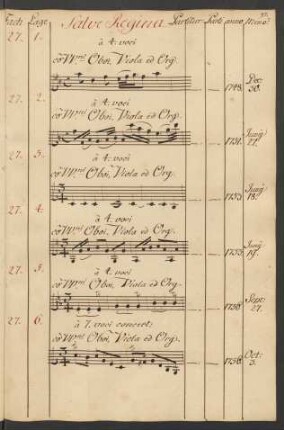 Fach Lage Salve Regina Part anno
27. 1. à 4: voci
co VVni Oboi, Viola ed Org.
1748. Dec:
30.
27. 2. à 4: voci
co VVni Oboi, Viola ed Org.
1751. Junÿ
27. 3. à 4: voci
co VVni Oboi, Viola ed Org.
1755 Junÿ
27. 4. à 4. voci
co VVni Oboi, Viola ed Org.
1755. Junÿ
19.
27. 5. à 4. voci
co VVni Oboi, Viola ed Org.
1756 Sept:
27.
27. 6. à 7. voci concert:
co VVni Oboi, Viola ed Org.
1756. Oct:
3.